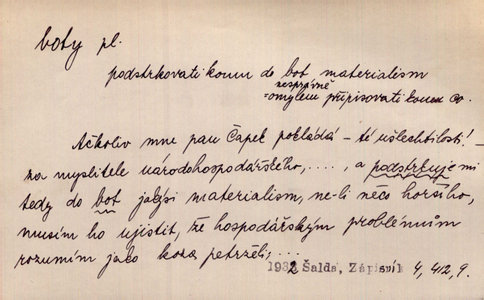 boty pl.
podstrkovati komu do bot materialism
nesprávně
= omylem připisovati komu co.
Ačkoliv mne pan Čapek pokládá – té ušlechtilosti! –
za myslitele národohospodářského, . . . ., a podstrkuje mi
tedy do bot jakýsi materialism, ne-li něco horšího,
musím ho ujistit, že hospodářským problémům
rozumím jako koza petrželi, . . .
1932 Šalda, Zápisník 4, 412, 9.